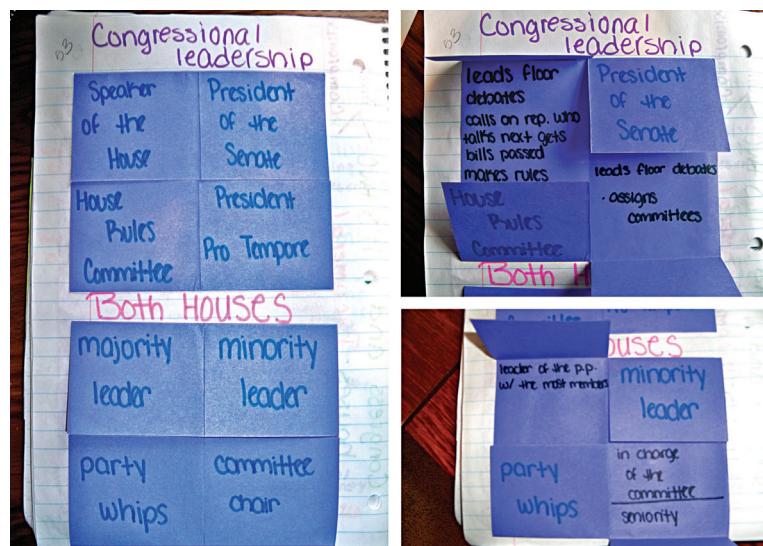 53
Congressional
leadership
Speaker
of the
House
President
of the
Senate
House
Rules
Committee
President
Pro Tempore
Both Houses
majority
leader
minority
leader
party
whips
committee
chair
53
Congressional
leadership
leads floor
debates
calls on rep. who
talks next gets
bills passed
makes rules
President
of the
Senate
House
Rules
Committee
leads floor debates
· assigns
committees
Both H
leader of the p.p.
w/ the most members
minority
leader
party
whips
in charge
of the
committee
seniority